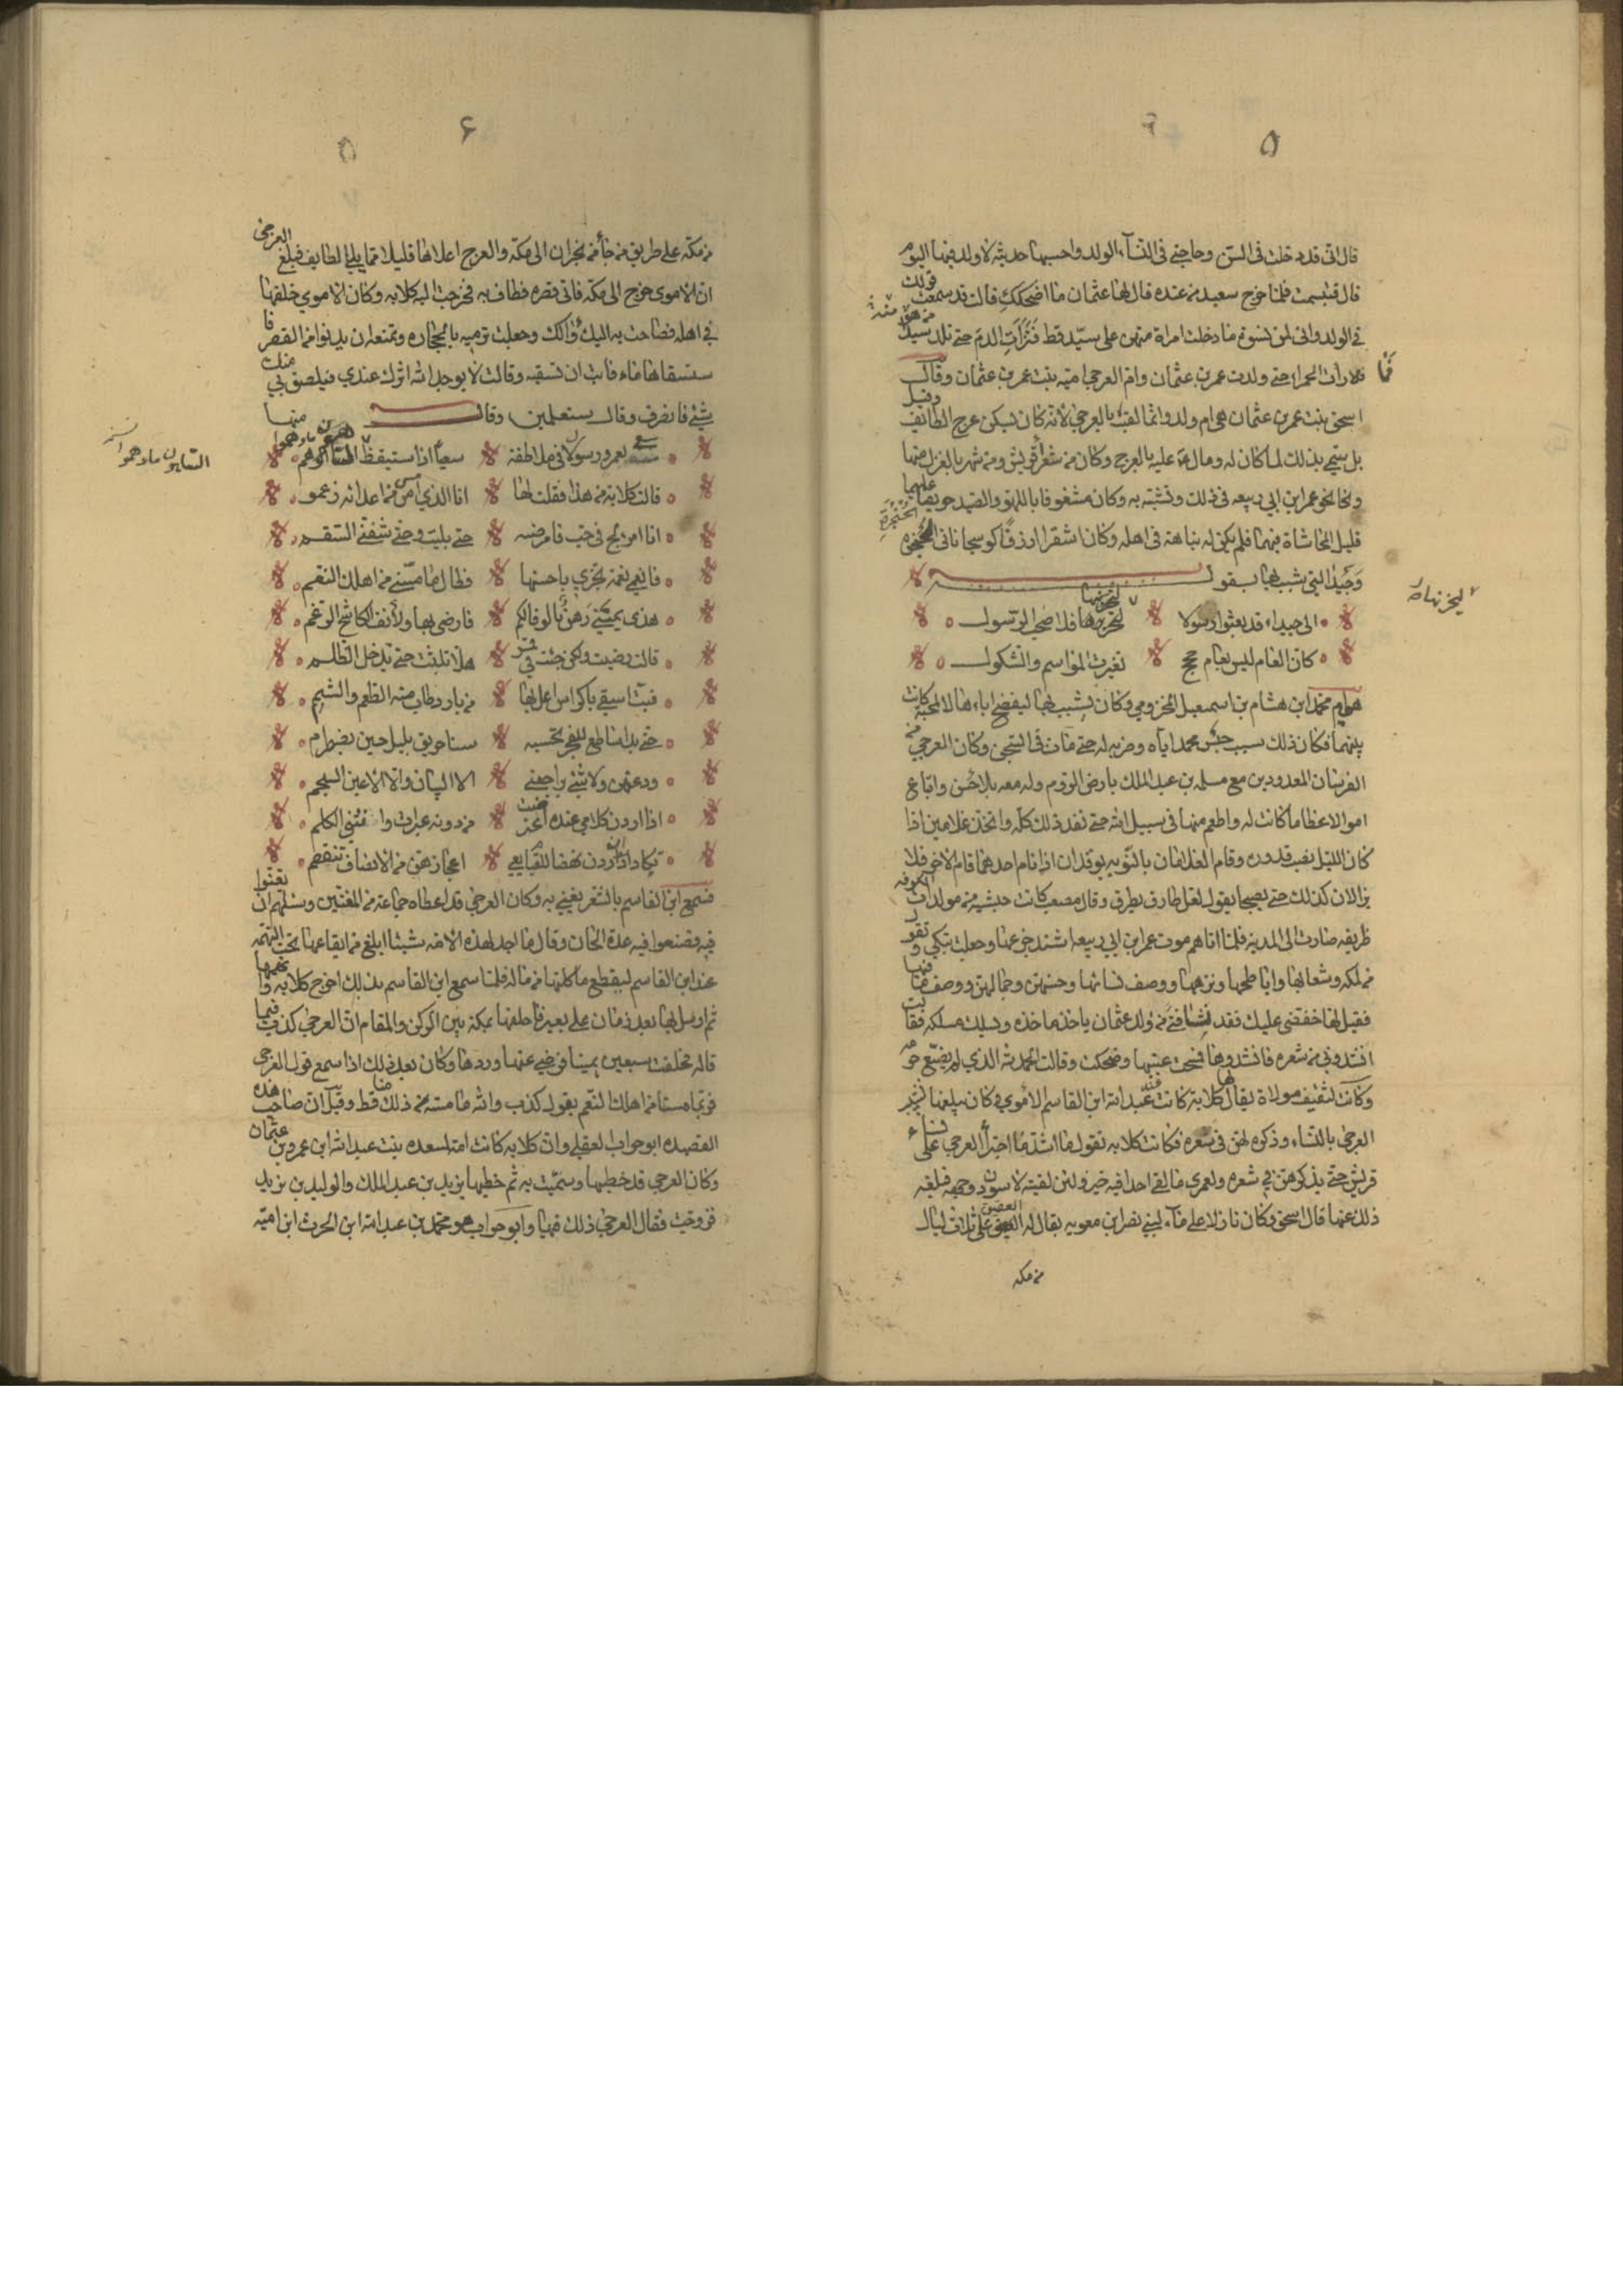 ۵
قال انى قد دخلت فى السن وحاجتى فى النسآء الولد واحسبها حديثه لا ولد فيها اليوم
قال فتبسمت فلما خرج سعيد من عنده قال لها عثمان ما اضحكك قالت قد سمعت قولك
فى الولد وانى لمن نسوة ما دخلت امراة منهن على سيد قط فَرَأَتِ الدم حتى تلد سيد من هو منه
فما رأت الحمراء حتى ولدت عمر بن عثمان وام العرجى امنه بنت عمر بن عثمان وقال
اسحق بنت عمر بن عثمان هى ام ولد وانما لقب بالعرجى لانه كان يسكن عرج الطائف وقيل
بل سمى بذلك لماء كان له ومال عليه بالعرج وكان من شعرآء قريش ومن شهر بالغزل منها
ونحا نحو عمر ابن ابى ربيعه فى ذلك وتشبه به وكان مشغوفا باللهو والصيد حريصا عليهما
قليل المحاشاة فيهما فلم يكن له نباهة فى اهله وكان اشقر ازرق كوسجا ناتى الحنجره
وجيدا التى شبب بها بقول
الى جيداء قد بعثوا رسولا ليحزنها فلا صحب الرسول
ليحزنها
كان العام ليس بعام حج تغيرت المواسم والشكول
هى ام محمد ابن هشام بن اسمعيل المخزومى وكان يشبب بها ليفضح ابنها لا لمحبة كانت
بينهما فكان ذلك سبب حبس محمد اياه وضربه له حتى مات فى السجن وكان العرجى من
الفرسان المعدودين مع مسلمه بن عبد الملك بارض الروم وله معه بلاء حسن وباع
اموالا عظاما كانت له واطعم منها فى سبيل الله حتى نفد ذلك كله واتخذ غلامين اذا
كان الليل نصب قدوره وقام الغلامان بالنوبه يوقدان اذا نام احدهما قام الاخر فلا
يزالان كذلك حتى يصبحا يقول لعل طارق يطرق وقال مصعب كانت حبشيه من مولدات
ظريفه صارت الى المدينه فلما اتاهم موت عمر ابن ابى ربيعه اشتد جزعها وجعلت تبكى وتقول
من لمكه وشعابها واباطحها ونزهها ووصف نسائها وحسنهن وجمالهن ووصف ما فيها
فقيل لها خفضى عليك فقد نشا فتى من ولد عثمان ياخذ ماخذه ويسلك مسلكه فقالت
انشدونى من شعره فانشدوها فمسحت عينيها وضحكت وقالت الحمد لله الذى لم يضيع حرمه
وكانت لثقيف مولاة يقال لها كلابة كانت عند عبد الله ابن القاسم الاموى وكان يبلغها تشبيب
العرجى بالنساء وذكره لهن فى شعره فكانت كلابه تقول ما اشد ما اجترأ العرجى على نساء
قريش حتى يذكرهن فى شعره ولعمرى ما لقى احدا فيه خير ولئن لقيته لاسودن وجهه فبلغه
ذلك عنها قال اسحق وكان نازلا على مآء لبنى نصر ابن معويه يقال له الفتق على ثلاث ليال
من مكه
۶
من مكة على طريق من جآء من نجران الى مكه والعرج اعلاها قليلا مما يلى الطايف فبلغ العرجى
ان الاموى خرج الى مكه فاتى قصره فطاف به فخرجت اليه كلابه وكان الاموى خلفها
فى اهله فصاحت به اليك واليك وجعلت ترميه بالحجاره وتمنعه ان يدنوا من القصر فا
ستسقاها ماء فابت ان تسقيه وقالت لا يوجد الله اثرك عندى فيلصق بى منك
شئ فانصرف وقال ستعلمين وقال
قالت كلابة من هذا فقلت لها انا الذى امس من اعدائه زعموا
انا امرؤ لج فى حب فامرضه حتى بليت وحتى شفنى السقم
فانعمى نعمة تجزى باحسنها فطال ما مسنى من اهلك النعم
هذى يمينى رهن بالوفا لكم فارضى بها ولانف الكاشح الرغم
قالت رضيت ولكن جئت فى قمر هلا تلبثت حتى تدخل الظلم
فبت اسقى باكواس اعل بها من بارد طاب منه الطعم والشبم
حتى بدا ساطع للفجر تحسبه سنا حريق بليل حين يضطرم
ودعتهن ولا شئ يراجعنى الا البنان والا الاعين السجم
اذا اردن كلامى عنده اعترضت من دونه عبرات وانثنى الكلم
تكاد اذا رمن نهضا للقيام معى اعجازهن من الانصاف تنقصم
فسمع ابن القاسم بالشعر يغنى به وكان العرجى قد اعطاه جماعة من المغنين وسئلهم ان يغنوا
فيه فصنعوا فيه عدة الحان وقال ما اجد لهذه الامه شيئا ابلغ من ايقاعها تحت التهمه
عند ابن القاسم ليقطع ماكلتها من ماله فلما سمع ابن القاسم بذلك اخرج كلابه واتهمها
ثم ارسل بها بعد زمان على بعير فاحلفها بمكة بين الركن والمقام ان العرجى كذب فيما
قاله فحلفت سبعين يمينا فرضى عنها وردها وكان بعد ذلك اذا سمع قول العرجى
فربما مسنا من اهلك النعم يقول كذب والله ما مسته من ذلك قط وقيل ان صاحب هذه
القصيده ابو حراب العقيلى وان كلابه كانت امة لسعده بنت عبد الله ابن عمرو بن عثمان
وكان العرجى قد خطبها وسميت به ثم خطبها يزيد بن عبد الملك والوليد بن يزيد
فزوجت فقال العرجى ذلك فيها وابو حراب هو محمد بن عبد الله ابن الحرث ابن اميه